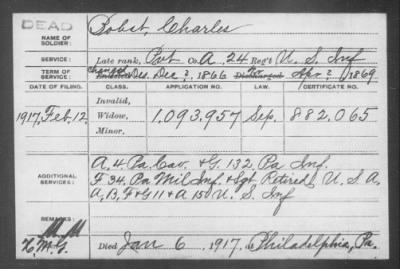 DEAD
NAME OF SOLDIER: Pobst, Charles
SERVICE: Late rank, Pvt Co. A, 24 Reg't U. S. Inf
TERM OF SERVICE: Enlisted Des. Dec 2, 1866 Discharged Apr 2, 1869
DATE OF FILING. CLASS. APPLICATION NO. LAW. CERTIFICATE NO.
Invalid,
1917, Feb. 12. Widow, 1,093,957 Sep. 882,065
Minor,
A. 4 Pa. Cav. & G. 132, Pa Inf.
ADDITIONAL SERVICES: F 34, Pa. Mil Inf. & Sgt Retired U. S. A
A, B, F & G 11 & A 15 U. S. Inf
REMARKS:
M. M
Died Jan 6, 1917, Philadelphia, Pa.